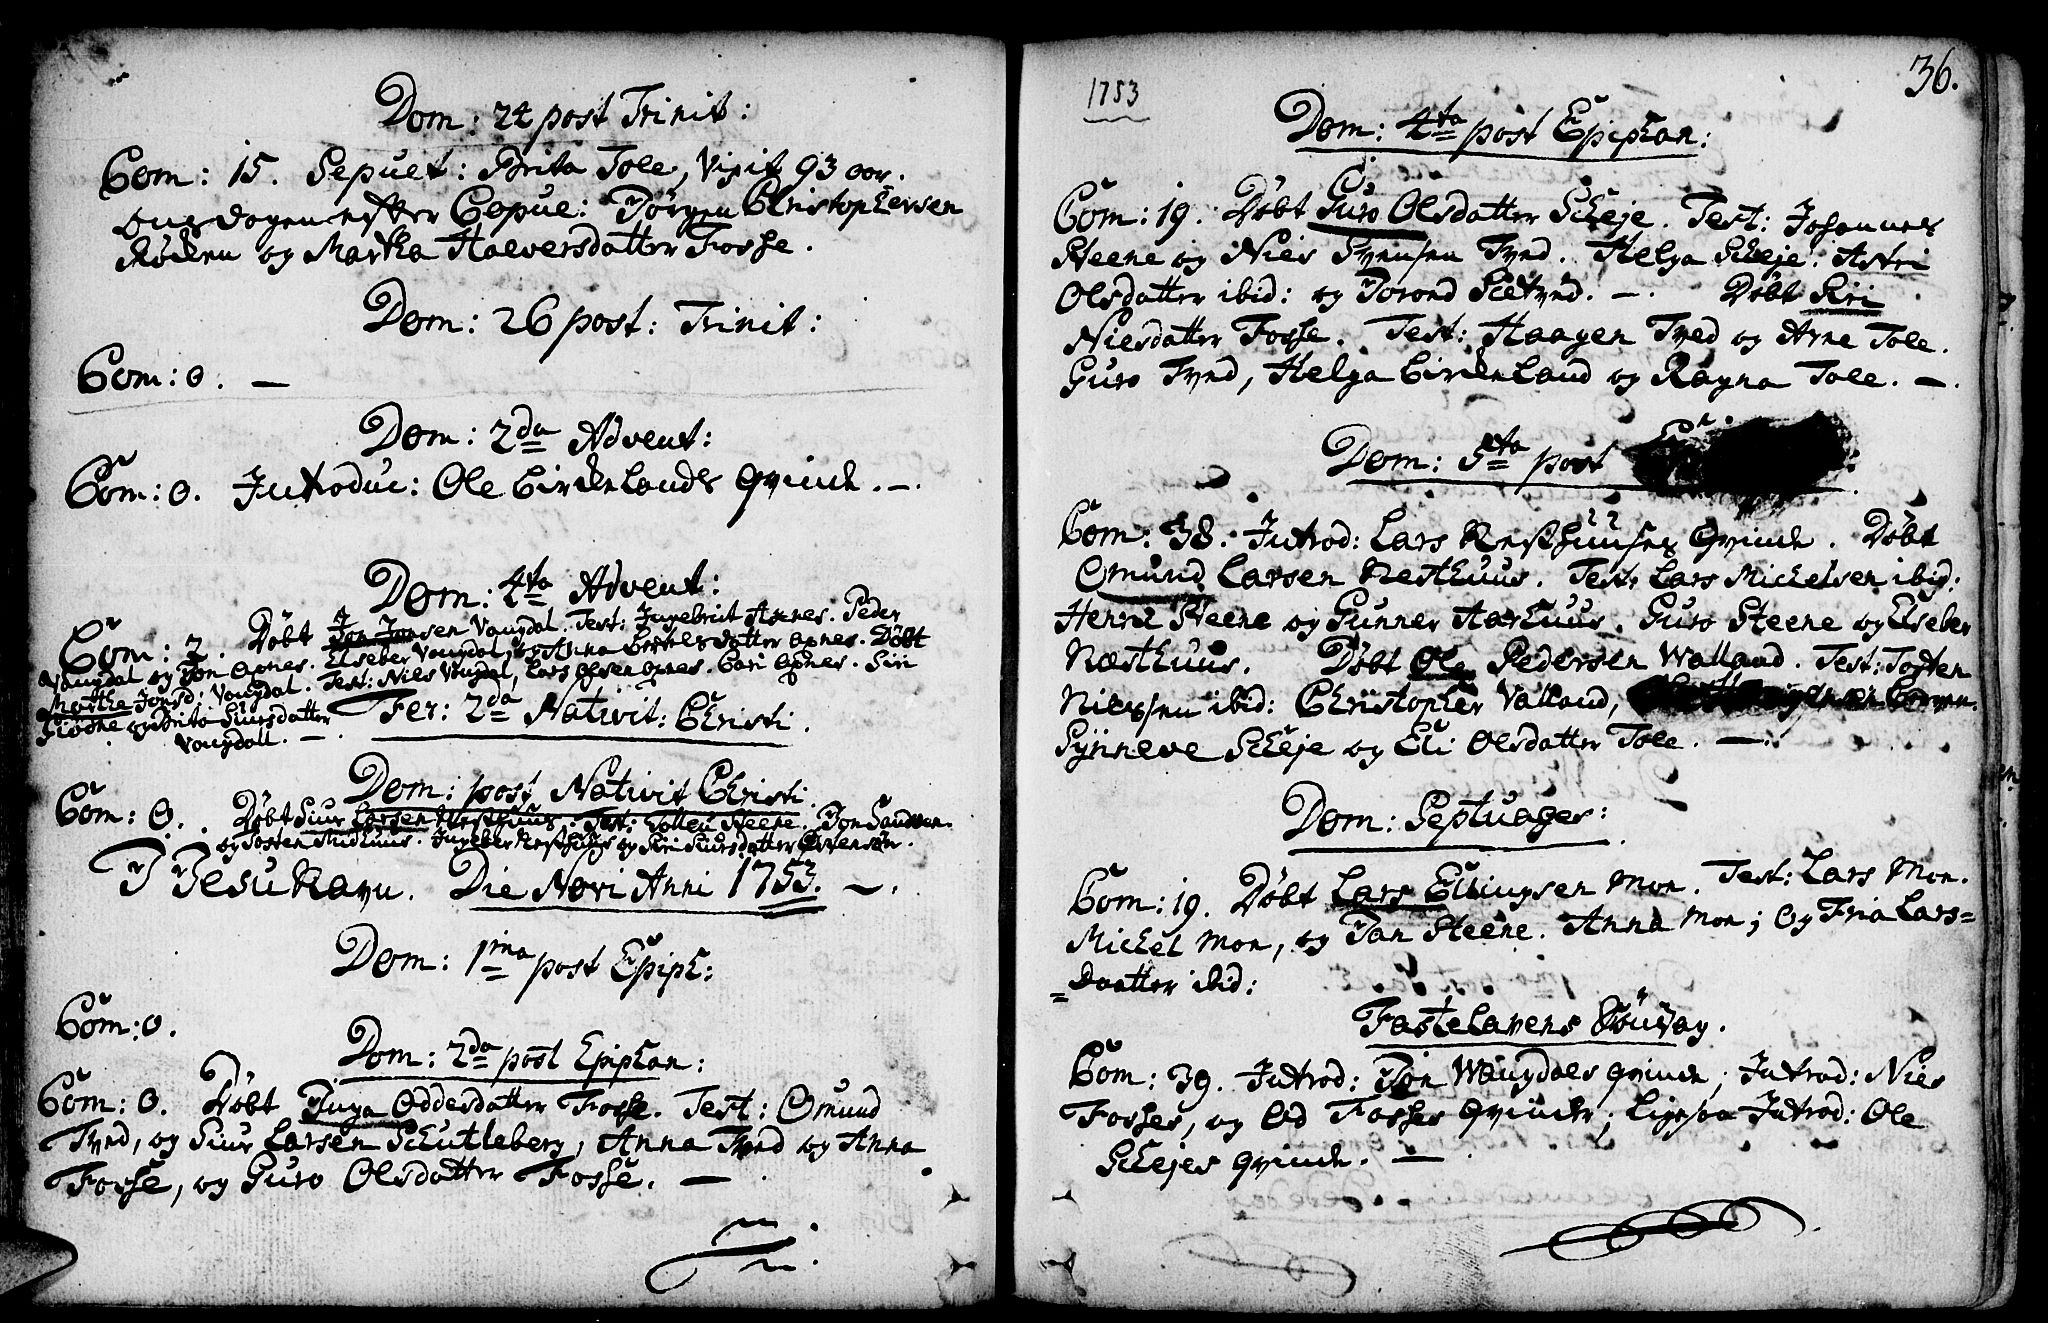 Dom: 24 post Trinit:
Com: 15. Sepult: Brita Tole, Vixit 93 aar.
Onsdagen efter Copul: Jörgen Christophersen
Röcken og Martha Halversdatter Fosse.
Dom: 26 post: Trinit:
Com: 0. —
Dom: 2da Advent:
Com: 0. Introduc: Ole Birckelands Qvinde. —.
Dom: 4ta Advent:
Com: 2. Döbt Jon Jonsen Vangdal. Test: Ingebrit Axnes. Peder
Vangdal og Jon Axnes. Elsebet Vangdal, og Anna datter Axnes. Döbt
Marthe Jonsd: Vangdal. Test: Niels Vangdal, Lars Olsen Axnes. Cari Axnes. Siri
og Brita Siursdatter
Vangdall. —.
Fer: 2da Nativit: Christi.
Dom: post Nativit Christi
Com: 0. Döbt Siur Larsen Næsthuus. Test: Steene. Jon Sandven.
og Tosten Midhuus. Ingeber Næsthuus og Siri Siursdatter
I Jesu Navn. Die Novi Anni 1753. —.
Dom: 1ma post Epiph:
Com: 0.
Dom: 2da post Epiphan:
Com: 0. Döbt Inga Oddesdatter Fosse. Test: Omund
Tved, og Siur Larsen Schutleberg, Anna Tved og Anna
Fosse, og Guro Olsdatter Fosse. —
1753
36.
Dom: 4ta post Epiphan:
Com: 19. Döbt Guro Olsdatter Scheje. Test: Johannes
Steene og Niels Svensen Tved. Helga Scheje. Astri
Olsdatter ibid: og Torond Tved. —. Döbt Siri
Nielsdatter Fosse. Test: Haagen Tved og Arne Tole.
Guro Tved, Helga Birckeland og Ragna Tole. —.
Dom: 5ta post
Com: 38. Introd: Lars Næsthuuses Qvinde. Döbt
Omund Larsen Nesthuus. Test: Lars Michelsen ibid:
Henrik Steene og Gunner Aarhuus. Guro Steene og Elseber
Næsthuus. Döbt Ole Pedersen Walland. Test: Tosten
Nielsen ibid: Christopher Valland,
Synneve Scheje og Eli Olsdatter Tole. —.
Dom: Septuages:
Com: 19. Döbt Lars Ellingsen Mon. Test: Lars Mon.
Michel Mon, og Jan Steene. Anna Mon; og Fria Lars=
=daatter ibid:
Fastelavens Söndag.
Com: 39. Introd: Jon Wangdals Qvinde; Introd: Niels
Fosses, og Od Fosses Qvinde; Ligesaa Introd: Ole
Schejes Qvinde. —